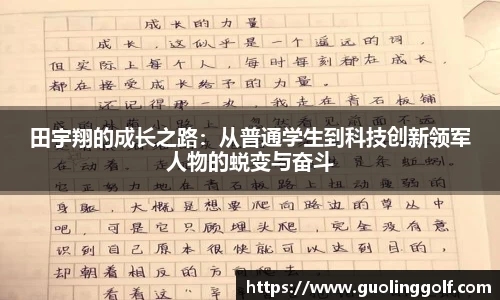 成长的力量
成长，这似乎是一个遥远的词，
但实际上每个人，每时每刻都在成长，
都在接受成长给予的力量。
还记得那一次，我走在青石板铺
田宇翔的成长之路：从普通学生到科技创新领军
人物的蜕变与奋斗
在青石板路上
身躯，大概是想要爬向路边的草丛中
吧，可是它只顾埋头爬，完全没有意
识到自己原本很快就可以达到目的，
却朝着相反的方向爬去
看着这
https://www.guolinggolf.com